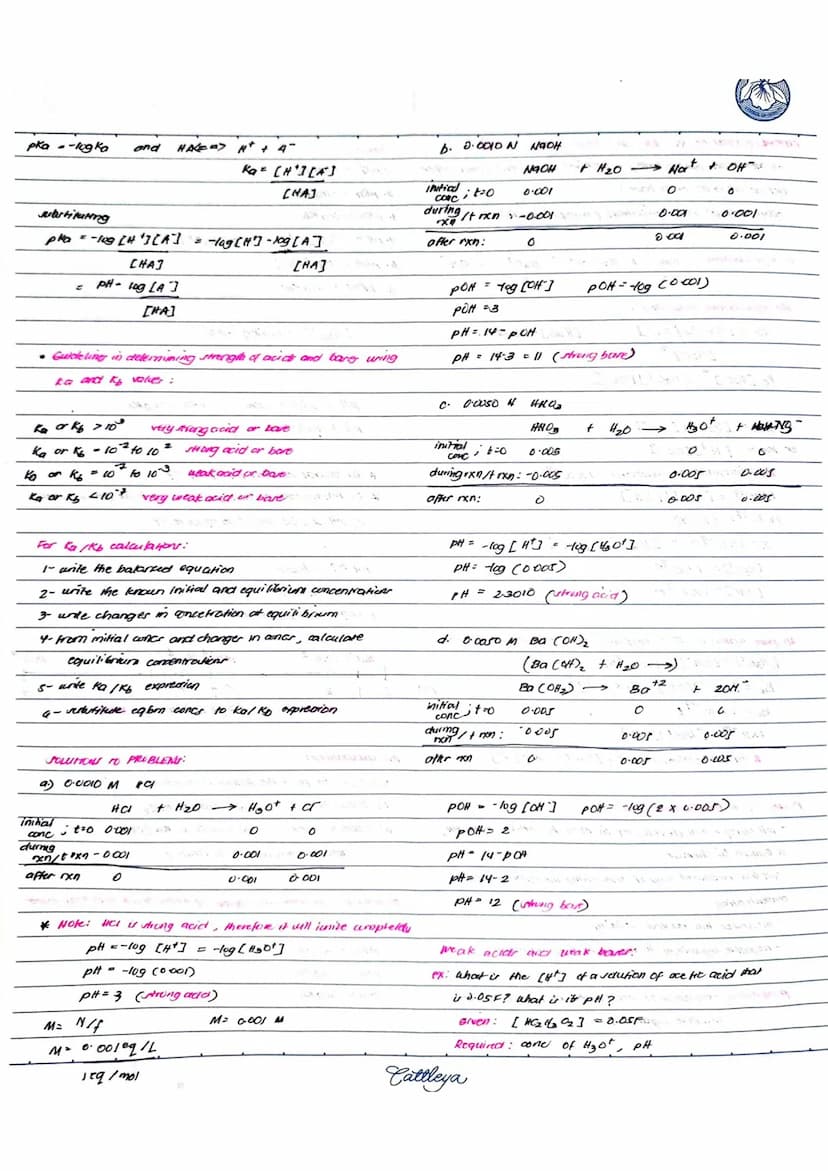 pKa = -logKa and HA<=> H⁺ + A⁻
Ka = [H⁺][A⁻]
[HA]
substituting
pKa = -log [H⁺][A⁻] = -log[H⁺] - log[A⁻]
[HA] [HA]
= pH - log [A⁻]
[HA]
• Guidelines in determining strength of acids and bases using
Ka and Kb values :
Ka or Kb > 10³ very strong acid or base
Ka or Kb = 10⁻² to 10² strong acid or base
Ka or Kb = 10⁻² to 10⁻³ weak acid or base
Ka or Kb < 10⁻⁷ very weak acid or base
For Ka/Kb calculations:
1- write the balanced equation
2- write the known initial and equilibrium concentrations
3- write changes in concetration at equilibrium
4- from initial concs and changes in concs, calculate
equilibrium concentrations.
5- write Ka/Kb expression
6- substitute eqbm concs to Ka/Kb expression
SOLUTIONS TO PROBLEMS:
a) 0.0010 M HCl
HCl + H₂O → H₃O⁺ + Cl⁻
initial conc ; t=0 0.001 0 0
during rxn/t rxn - 0.001 0.001 0.001
after rxn 0 0.001 0.001
* Note: HCl is strong acid, therefore it will ionize completely
pH = -log [H⁺] = -log[H₃O⁺]
pH = -log (0.001)
pH = 3 (strong acid)
M = N/f M = 0.001 M
M = 0.001 eq/L
1 eq/mol
b. 0.0010 N NaOH
NaOH + H₂O → Na⁺ + OH⁻
initial conc ; t=0 0.001 0 0
during rxn /t rxn : -0.001 0.001 0.001
after rxn: 0 0.001 0.001
pOH = -log [OH⁻] pOH = -log (0.001)
pOH = 3
pH = 14 - pOH
pH = 14-3 = 11 (strong base)
c. 0.0050 N HNO₃
HNO₃ + H₂O → H₃O⁺ + NO₃⁻
initial conc ; t=0 0.005 0 0
during rxn/t rxn: -0.005 0.005 0.005
after rxn: 0 0.005 0.005
pH = -log [H⁺] = -log [H₃O⁺]
pH = -log (0.005)
pH = 2.3010 (strong acid)
d. 0.0050 M Ba (OH)₂
(Ba (OH)₂ + H₂O →)
Ba (OH₂) → Ba⁺² + 2OH⁻
initial conc ; t=0 0.005 0 0
during rxn / t rxn : -0.005 0.005 0.005
after rxn 0 0.005 0.005
pOH = -log [OH⁻] pOH = -log (2 x 0.005)
pOH = 2
pH = 14-pOH
pH = 14-2
pH = 12 (strong base)
Weak acids and weak bases:
ex: What is the [H⁺] of a solution of acetic acid that
is 0.05F? what is its pH?
Given: [HC₂H₃O₂] = 0.05F
Required: conc of H₃O⁺, pH
Cattleya